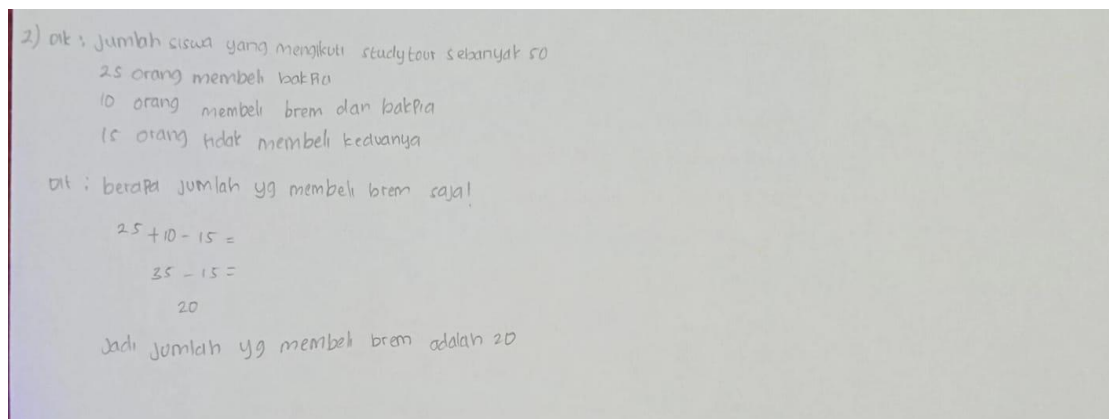 2) dik : Jumlah siswa yang mengikuti studytour sebanyak 50
25 orang membeli bakpia
10 orang membeli brem dan bakpia
15 orang tidak membeli keduanya
Dit : berapa jumlah yg membeli brem saja!
25 + 10 - 15 =
35 - 15 =
20
Jadi jumlah yg membeli brem adalah 20